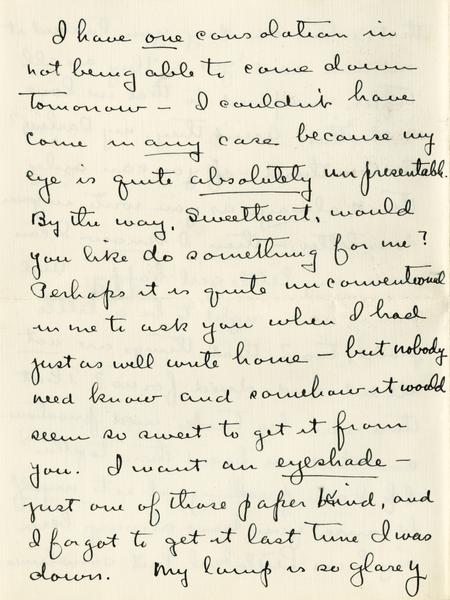 I have one consolation in
not being able to come down
tomorrow – I couldn't have
come in any case because my
eye is quite absolutely unpresentable.
By the way, Sweetheart, would
you like do something for me?
Perhaps it is quite unconventional
in me to ask you when I had
just as well write home – but nobody
need know and somehow it would
seem so sweet to get it from
you. I want an eyeshade –
just one of those paper kind, and
I forgot to get it last time I was
down. My lamp is so glarey